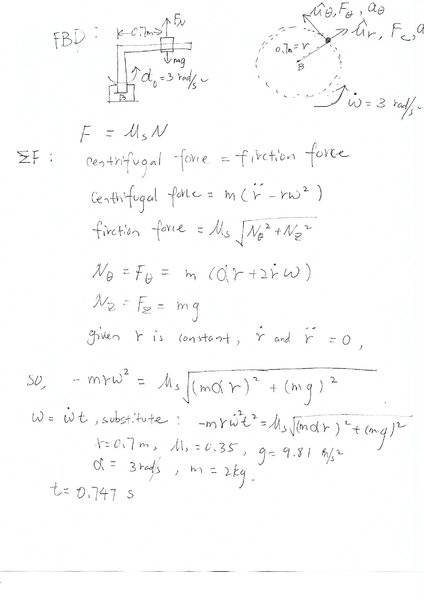 FBD:
0.7m
F,N
mg
α₀ = 3 rad/s²
B
û_θ, F_θ, a_θ
û_r, F_c, a
0.7m = r
B
ẇ = 3 rad/s²
F = μ_s N
ΣF : centrifugal force = firction force
centhifugal forle = m ( r̈ - rω² )
firction force = μ_s √(N_θ² + N_z²)
N_θ = F_θ = m (αr + 2ṙω)
N_z = F_z = mg
given r is constant, ṙ and r̈ = 0,
so, - mrω² = μ_s √((mαr)² + (mg)²)
ω = ω̇t, substitute : -mrω̇²t² = μ_s √((mαr)² + (mg)²)
r = 0.7m, μ_s = 0.35, g = 9.81 m/s²
α = 3 rad/s, m = 2kg.
t = 0.747 s